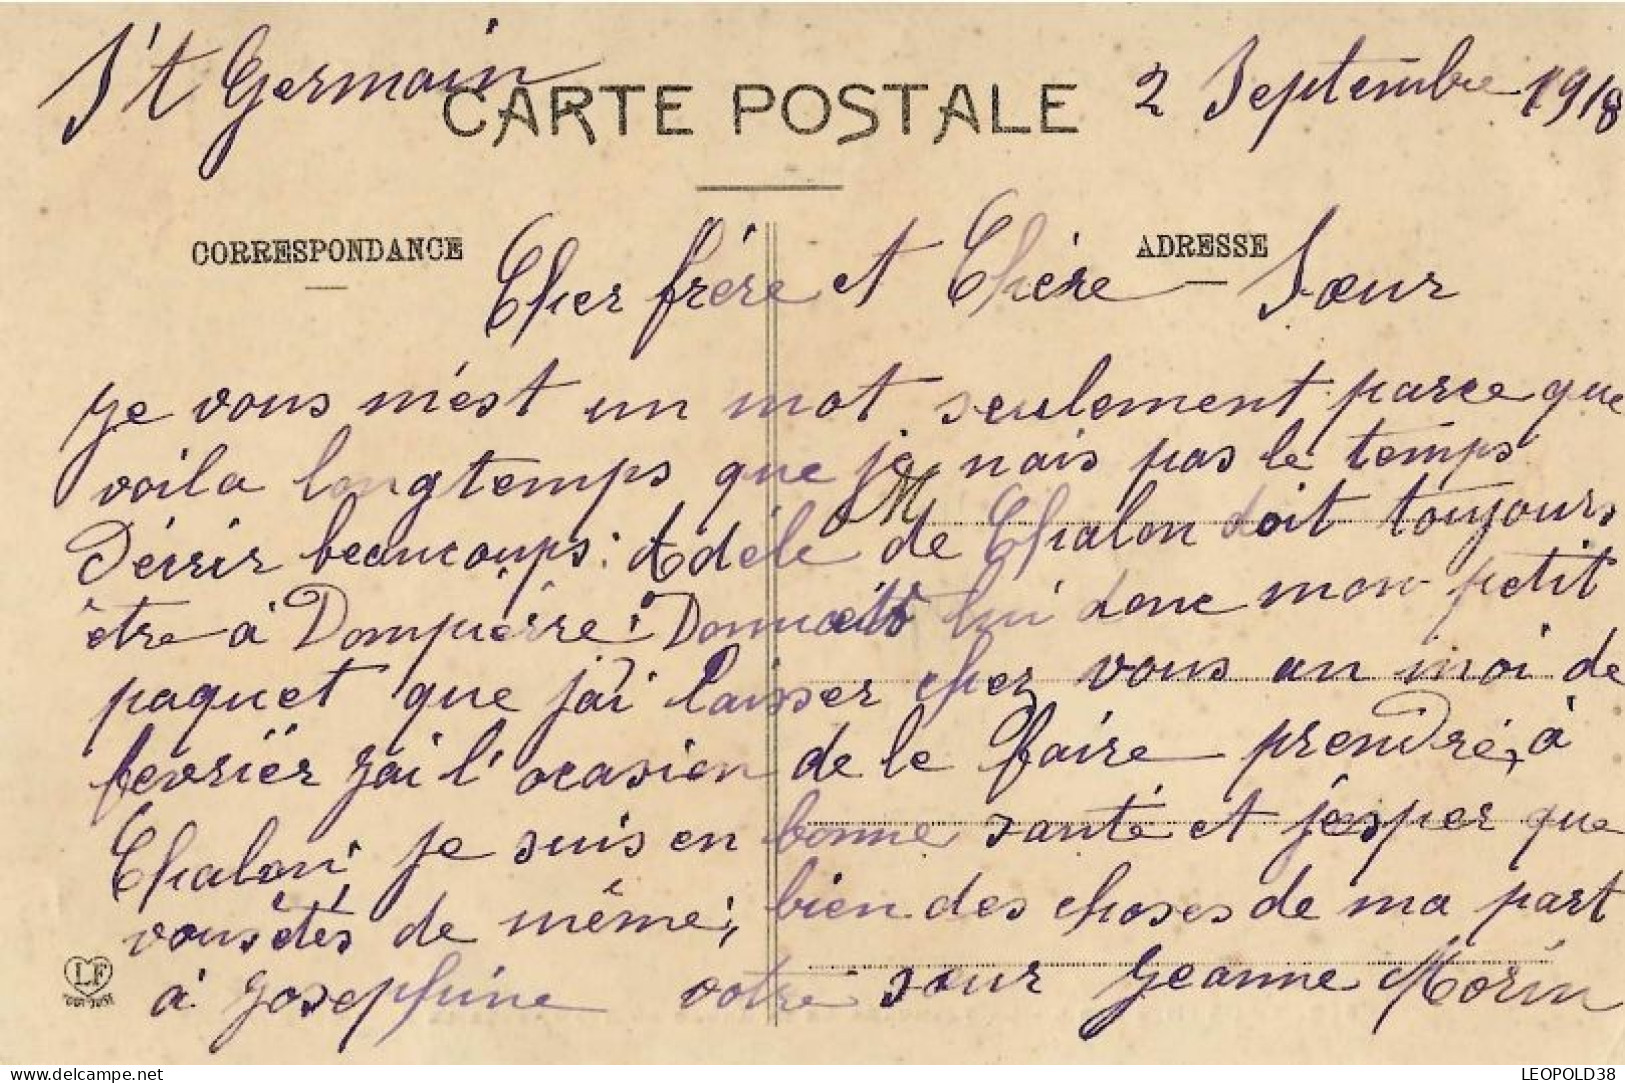 S't Germain
CARTE POSTALE
2 Septembre 1918
CORRESPONDANCE
ADRESSE
Cher frére et Chére Sœur
Je vous m'est un mot seulement parce que
voila longtemps que je nais pas le temps
Décrir beaucoups: Adéle de Chalon doit toujours
M
être à Dompierre: Donnait lui donc mon petit
paquet que j'ai laisser cher vous au moi de
fevriér jai l'ocasion de le faire prendre, à
Chalon je suis en bonne santé et j'esper que
vous étés de même; bien des choses de ma part
à Josephine votre sœur Jeanne Morin
LF
LEOPOLD38